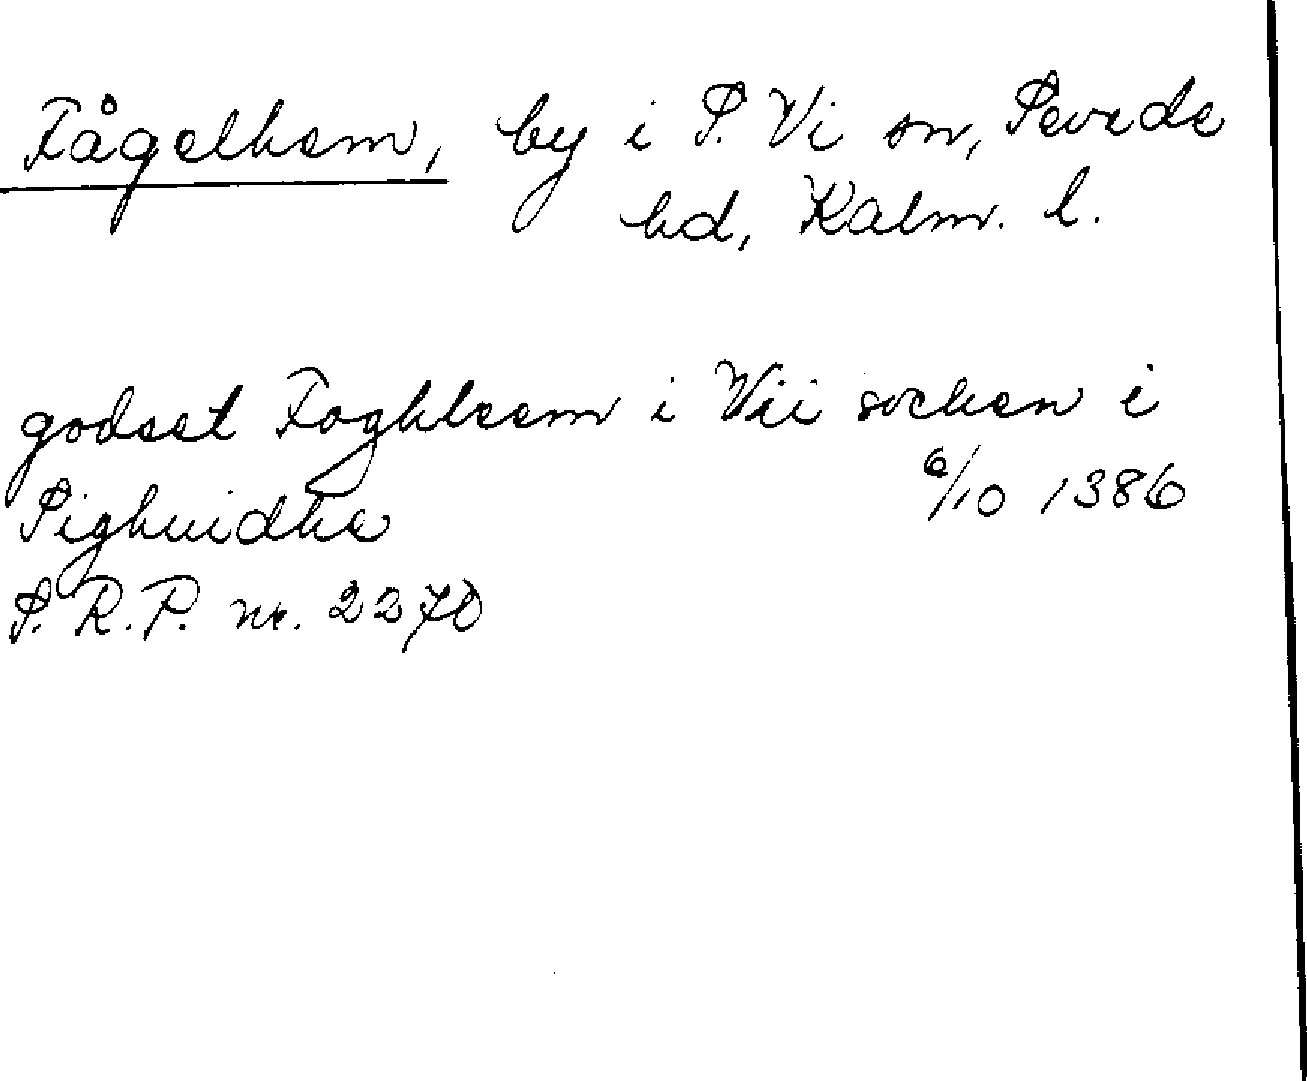 Fågelhem, by i S. Vi sn, Sevede
hd, Kalm. l.
godset Foghleem i Vii socken i
Sighuidhe 6/10 1386
S.R.P. nr. 2270